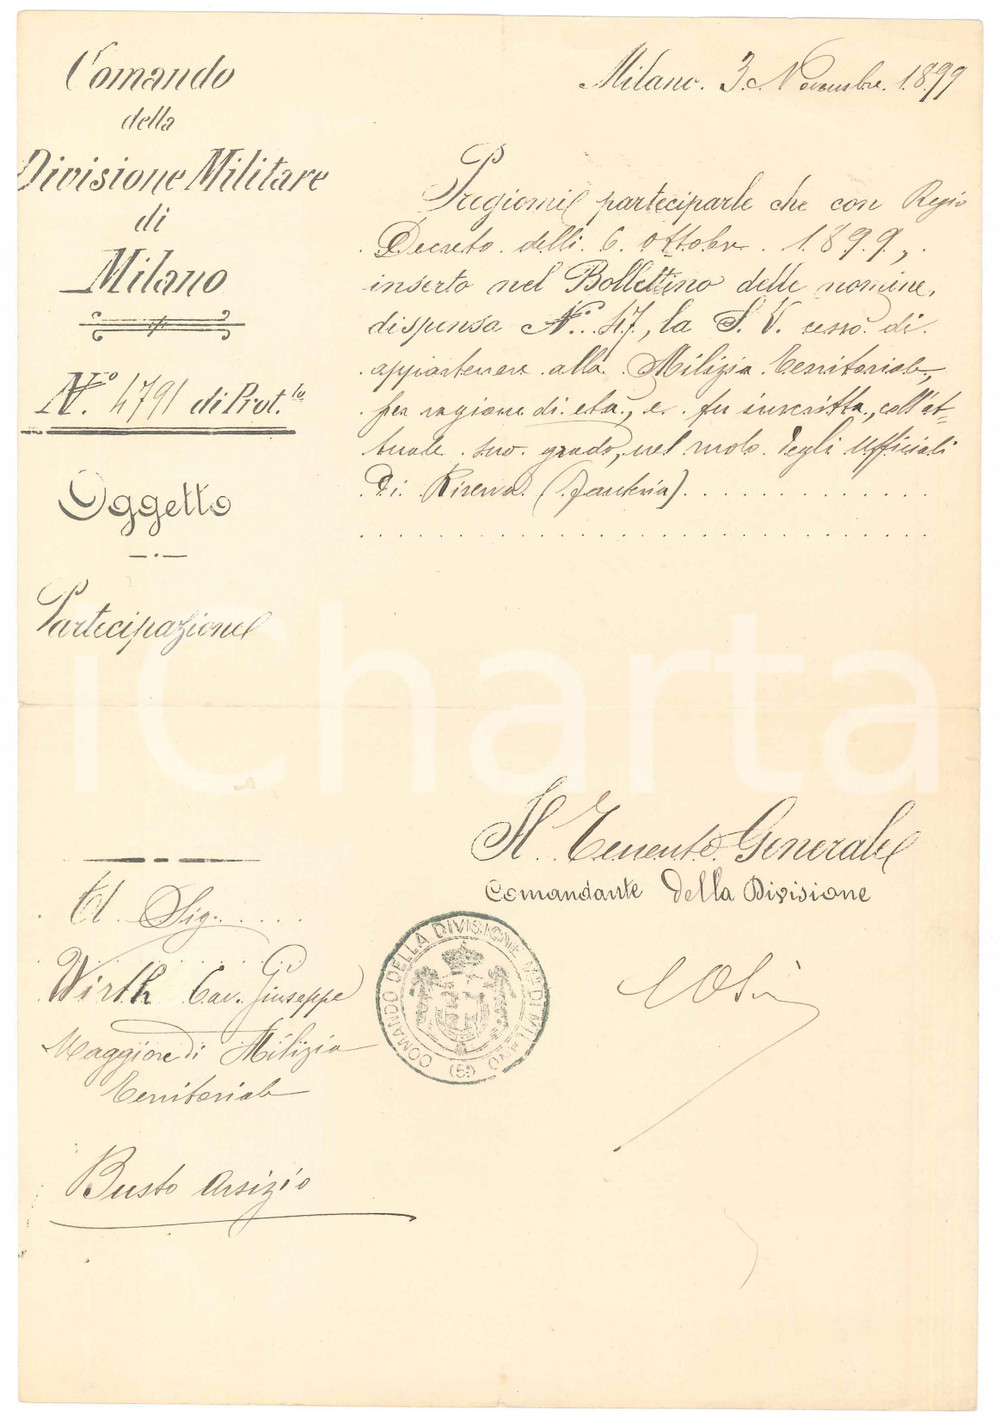 Comando
della
Divisione Militare
di
Milano
N.º 4791 di Prot.lo
Oggetto
Partecipazione
Milano. 3. Novembre. 1899
Pregiomi parteciparle che con Regio
Decreto delli 6. ottobre. 1899,
inserto nel Bollettino delle nomine,
dispensa Nº. 47, la S. V. cessò di
appartenere alla Milizia Territoriale,
per ragione di età, e fu inscritta, coll'at-
tuale suo grado, nel ruolo degli Ufficiali
Di Riserva (fanteria).
Il Tenente Generale
Comandante della Divisione
COMANDO DELLA DIVISIONE MRE DI MILANO
(5ª)
Al Sig.
Wirth Cav. Giuseppe
Maggiore di Milizia
Territoriale
Busto Arsizio
iCharta